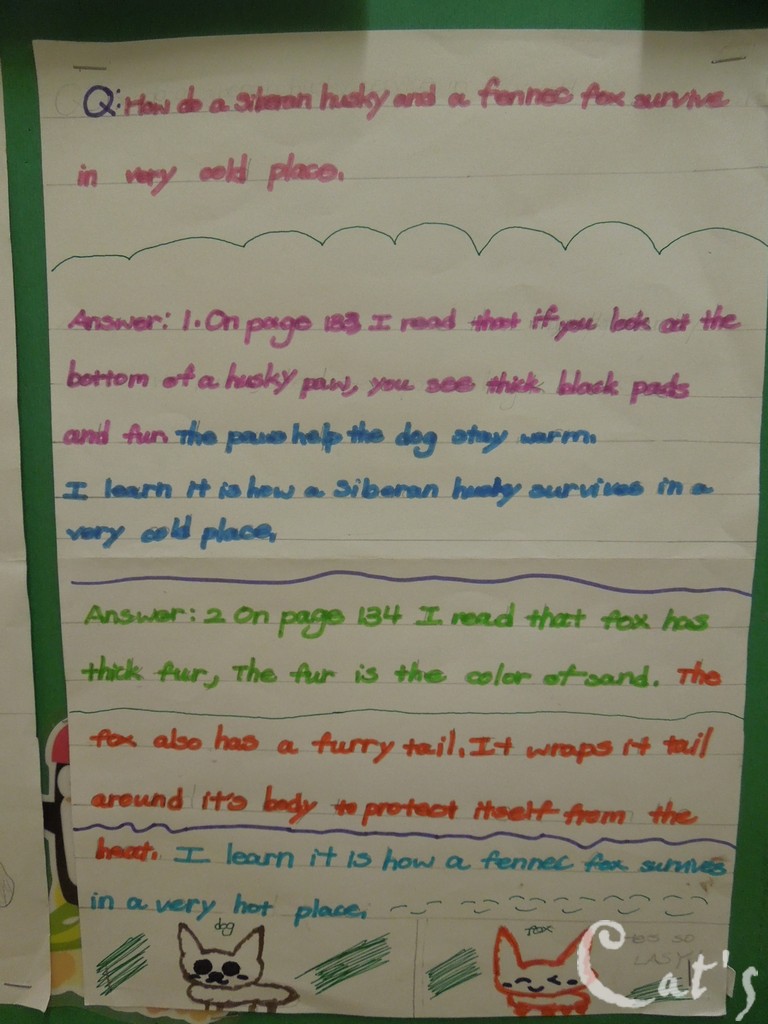 Q: How do a Siberan husky and a fennec fox survive
in very cold place.
Answer: 1. On page 133 I read that if you look at the
bottom of a husky paw, you see thick black pads
and fur. The paws help the dog stay warm.
I learn it is how a Siberan husky survives in a
very cold place.
Answer: 2 On page 134 I read that fox has
thick fur, The fur is the color of sand. The
fox also has a furry tail. It wraps it tail
around it's body to protect itself from the
heat. I learn it is how a fennec fox survives
in a very hot place.
dog
fox
SO
LASY
Cat's